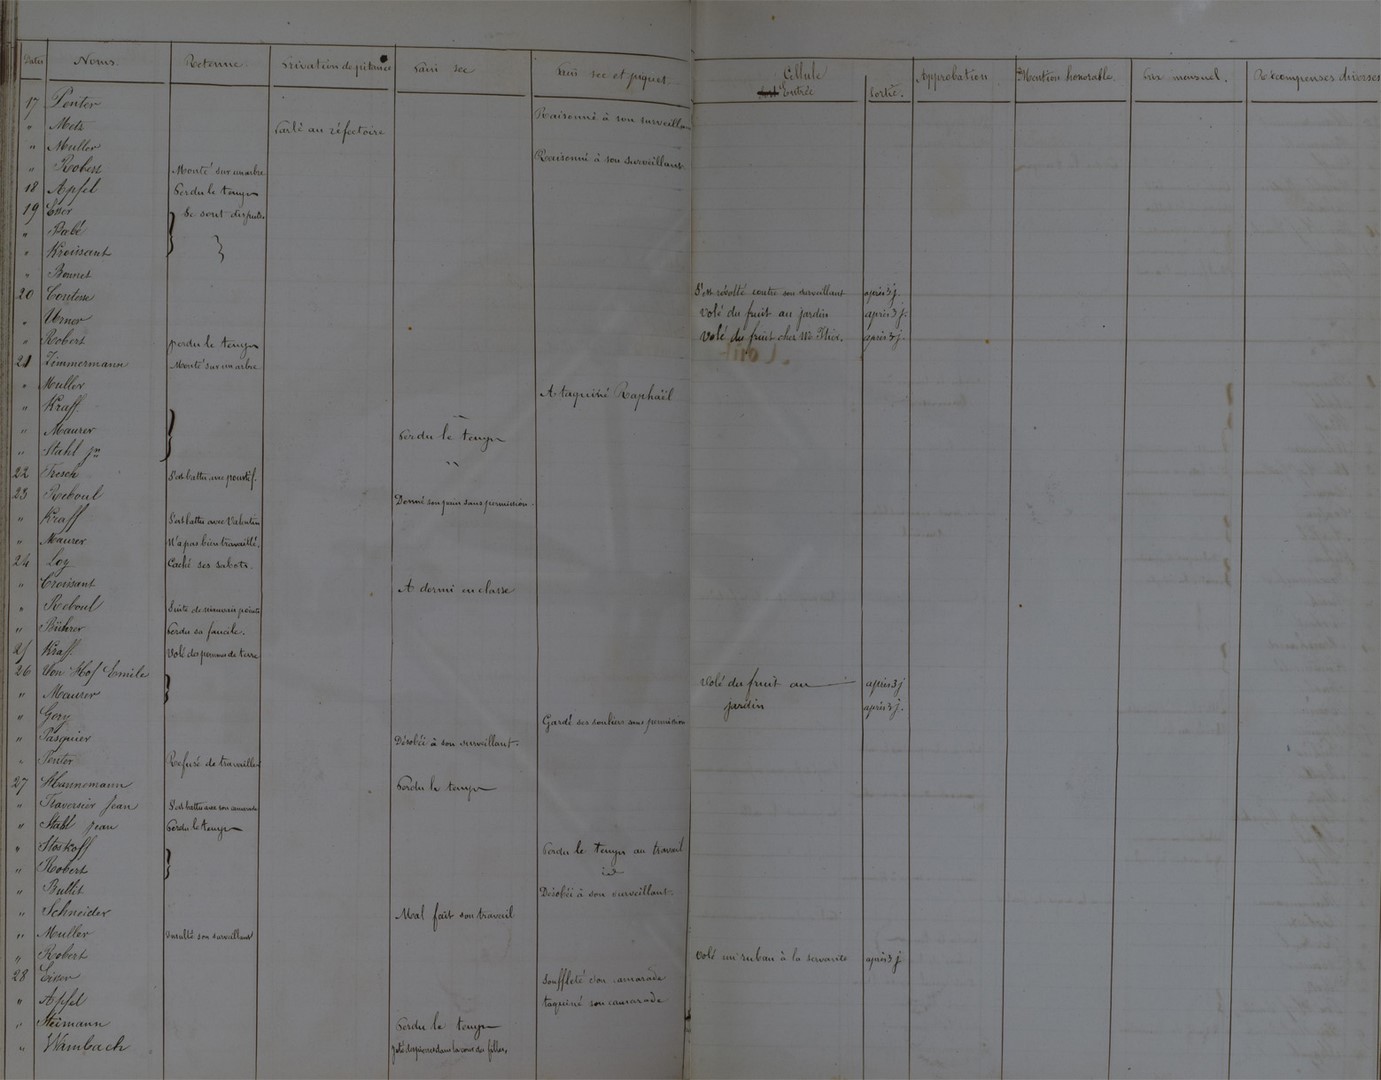 Dates Noms. Retenue. Privation de pitance Pain sec Pain sec et piquet. Cellule Approbation Mention honorable. Prix mensuel. Récompenses diverses
Entrée Sortie.
17 Penter Raisonné à son surveillant
" Metz Parlé au réfectoire
" Muller Raisonné à son surveillant.
" Robert Monté sur un arbre
18 Apfel Perdu le temps
19 Eser Se sont disputés
" Babé
" Kroissant
" Bonnet
20 Contesse S'est révolté contre son surveillant après 3 j.
" Urner Volé du fruit au jardin après 3 j.
" Robert perdu le temps Volé du fruit chez Mr après 3 j.
21 Zimmermann Monté sur un arbre
" Muller A taquiné Raphaël
" Kraff
" Maurer Perdu le temps
" Stahl jn "
22 Fresch S'est battu avec
23 Reboul Donné son pain sans permission
" Kraff S'est battu avec Valentin
" Maurer N'a pas bien travaillé.
24 Loy Caché ses sabots.
" Croissant A dormi en classe
" Reboul Suite de mauvais points
" Bührer Perdu sa faucile.
25 Kraff Volé des pommes de terre
26 Von Hof Emile Volé du fruit au après 3 j
" Maurer jardin après 3 j.
" Gory Gardé ses souliers sans permission
" Pasquier Désobéi à son surveillant.
" Penter Refusé de travailler
27 Hannemann Perdu le temps
" Traversier Jean S'est battu avec son camarade
" Stahl Jean Perdu le temps
" Stoskoff Perdu le temps au travail
" Robert id
" Bullit Désobéi à son surveillant.
" Schneider Mal fait son travail
" Muller Insulté son surveillant
" Robert Volé un ruban à la servante après 3 j
28 Eiser Souffleté son camarade
" Apfel taquiné son camarade
" Steimann Perdu le temps
" Wambach Jeté des pierres dans la cour des filles.